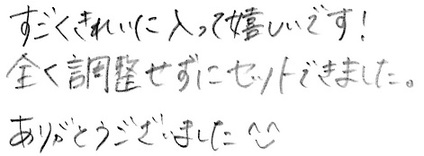 すごくきれいに入って嬉しいです!
全く調整せずにセットできました。
ありがとうございました^^